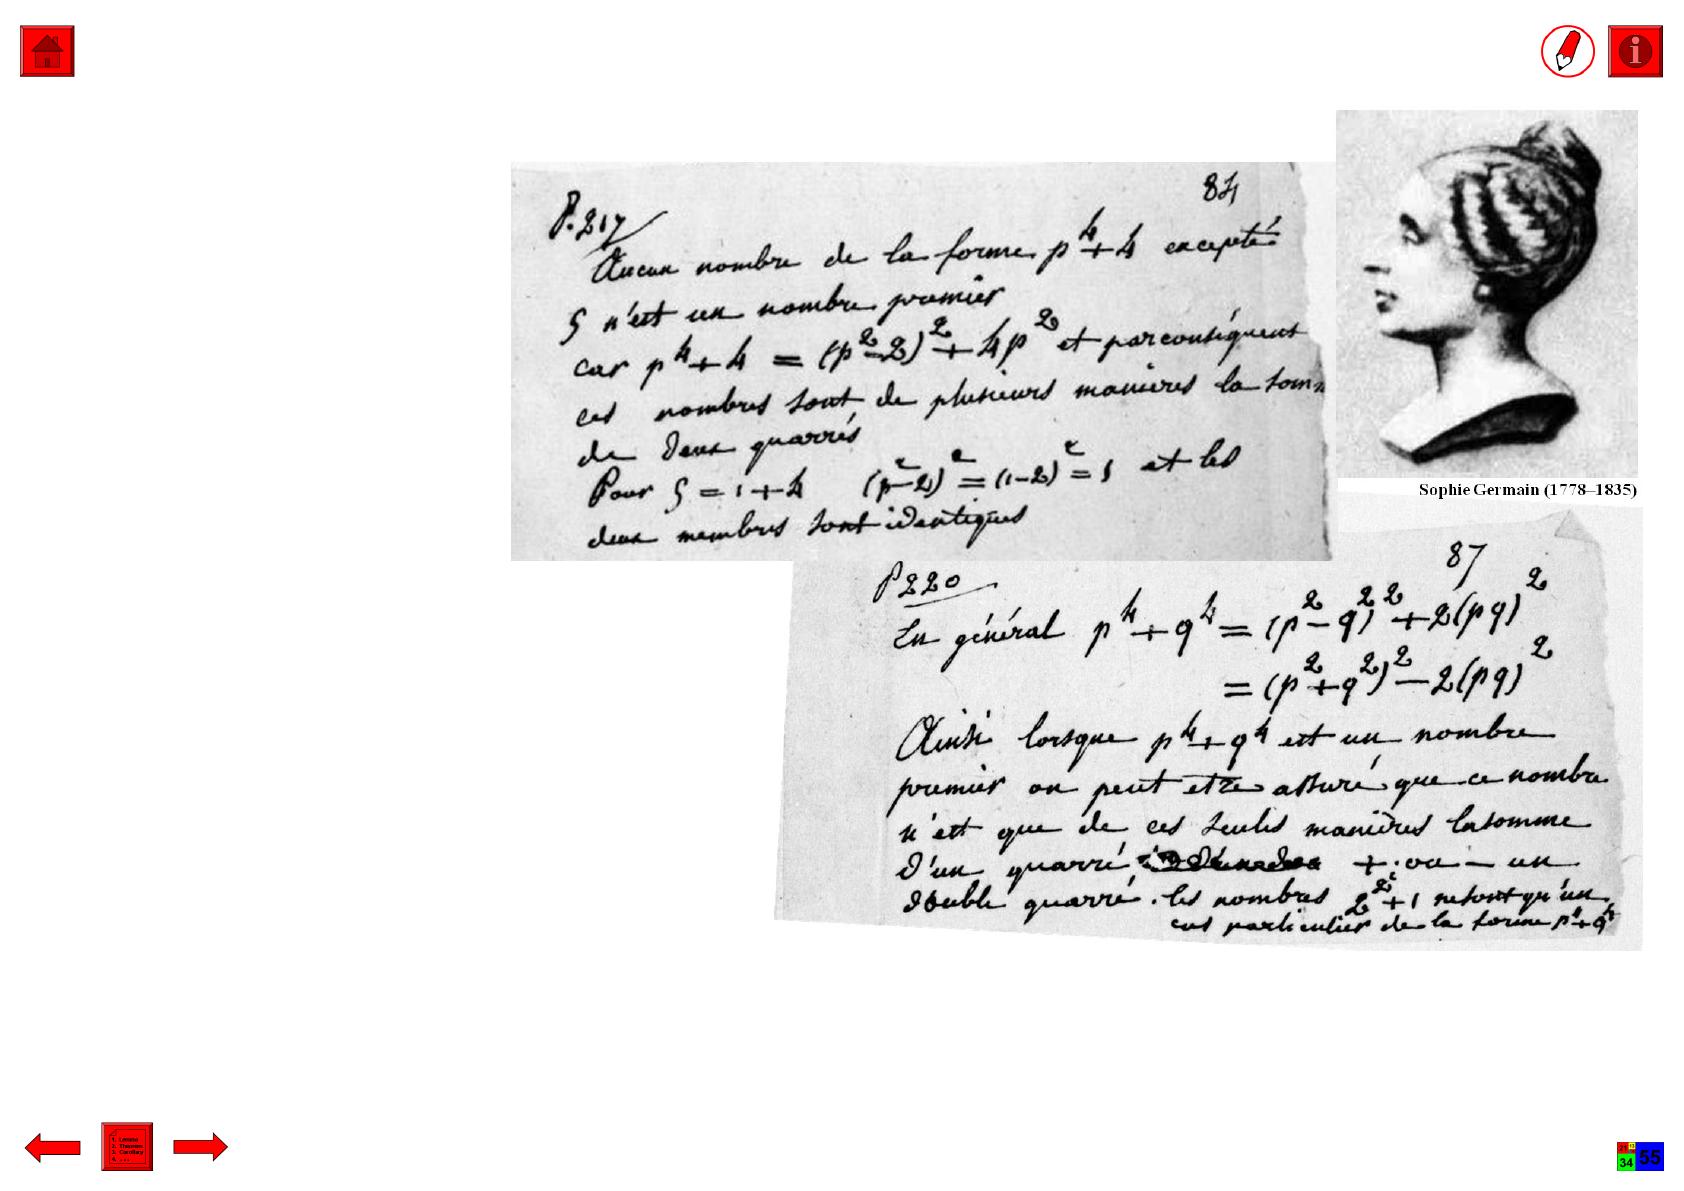 84
P. 217
Aucun nombre de la forme p⁴ + 4 excepté
5 n'est un nombre premier
car p⁴ + 4 = (p² - 2)² + 4p² et parconséquent
ces nombres sont de plusieurs manières la som
de deux quarrés
Pour 5 = 1 + 4 (p² - 2)² = (1 - 2)² = 1 et les
deux membres sont identiques
Sophie Germain (1778–1835)
87
P 220
En général p⁴ + q⁴ = (p² - q²)² + 2(pq)²
= (p² + q²)² - 2(pq)²
Ainsi lorsque p⁴ + q⁴ est un nombre
premier on peut etre assuré que ce nombre
n'est que de ces seules manières la somme
d'un quarré + ou - un
double quarré. les nombres 2^2^i + 1 ne sont qu'un
cas particulier de la forme p⁴ + q⁴
34 55